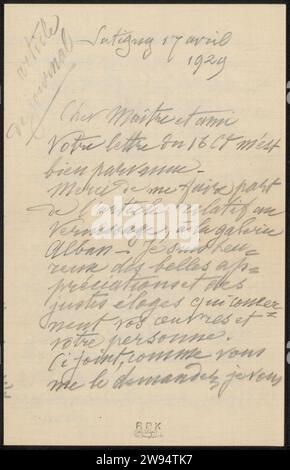 article
de journal
Satigny 17 avril
1929
Cher Maître et ami
Votre lettre du 16 Ct m'est
bien parvenue –
Merci de me faire part
de l'article relatif au
Vernissage, à la galerie
Alban – Je suis heu=
reux des belles ap=
préciations et des
justes éloges qui concer=
nent vos œuvres et
votre personne.
Ci joint, comme vous
me le demandez, je vous
RPK
alamy
www.alamy.com
Image ID: 2W94TK7